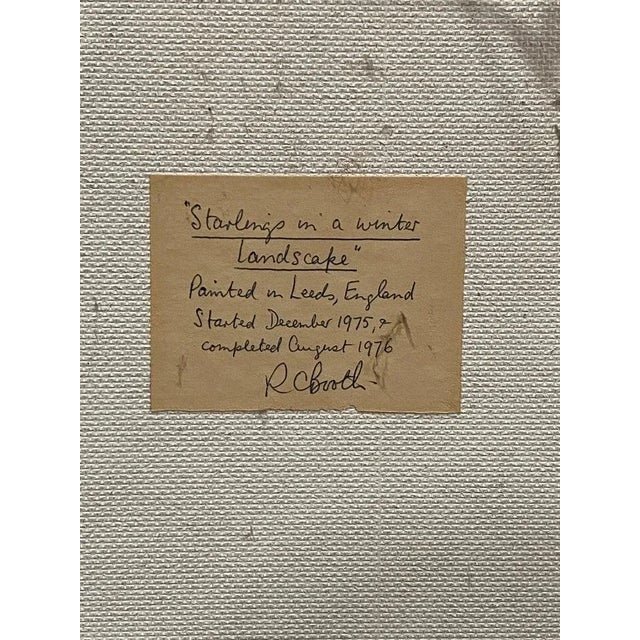 "Starlings in a winter
Landscape"
Painted in Leeds, England
Started December 1975, &
completed August 1976
R C Booth